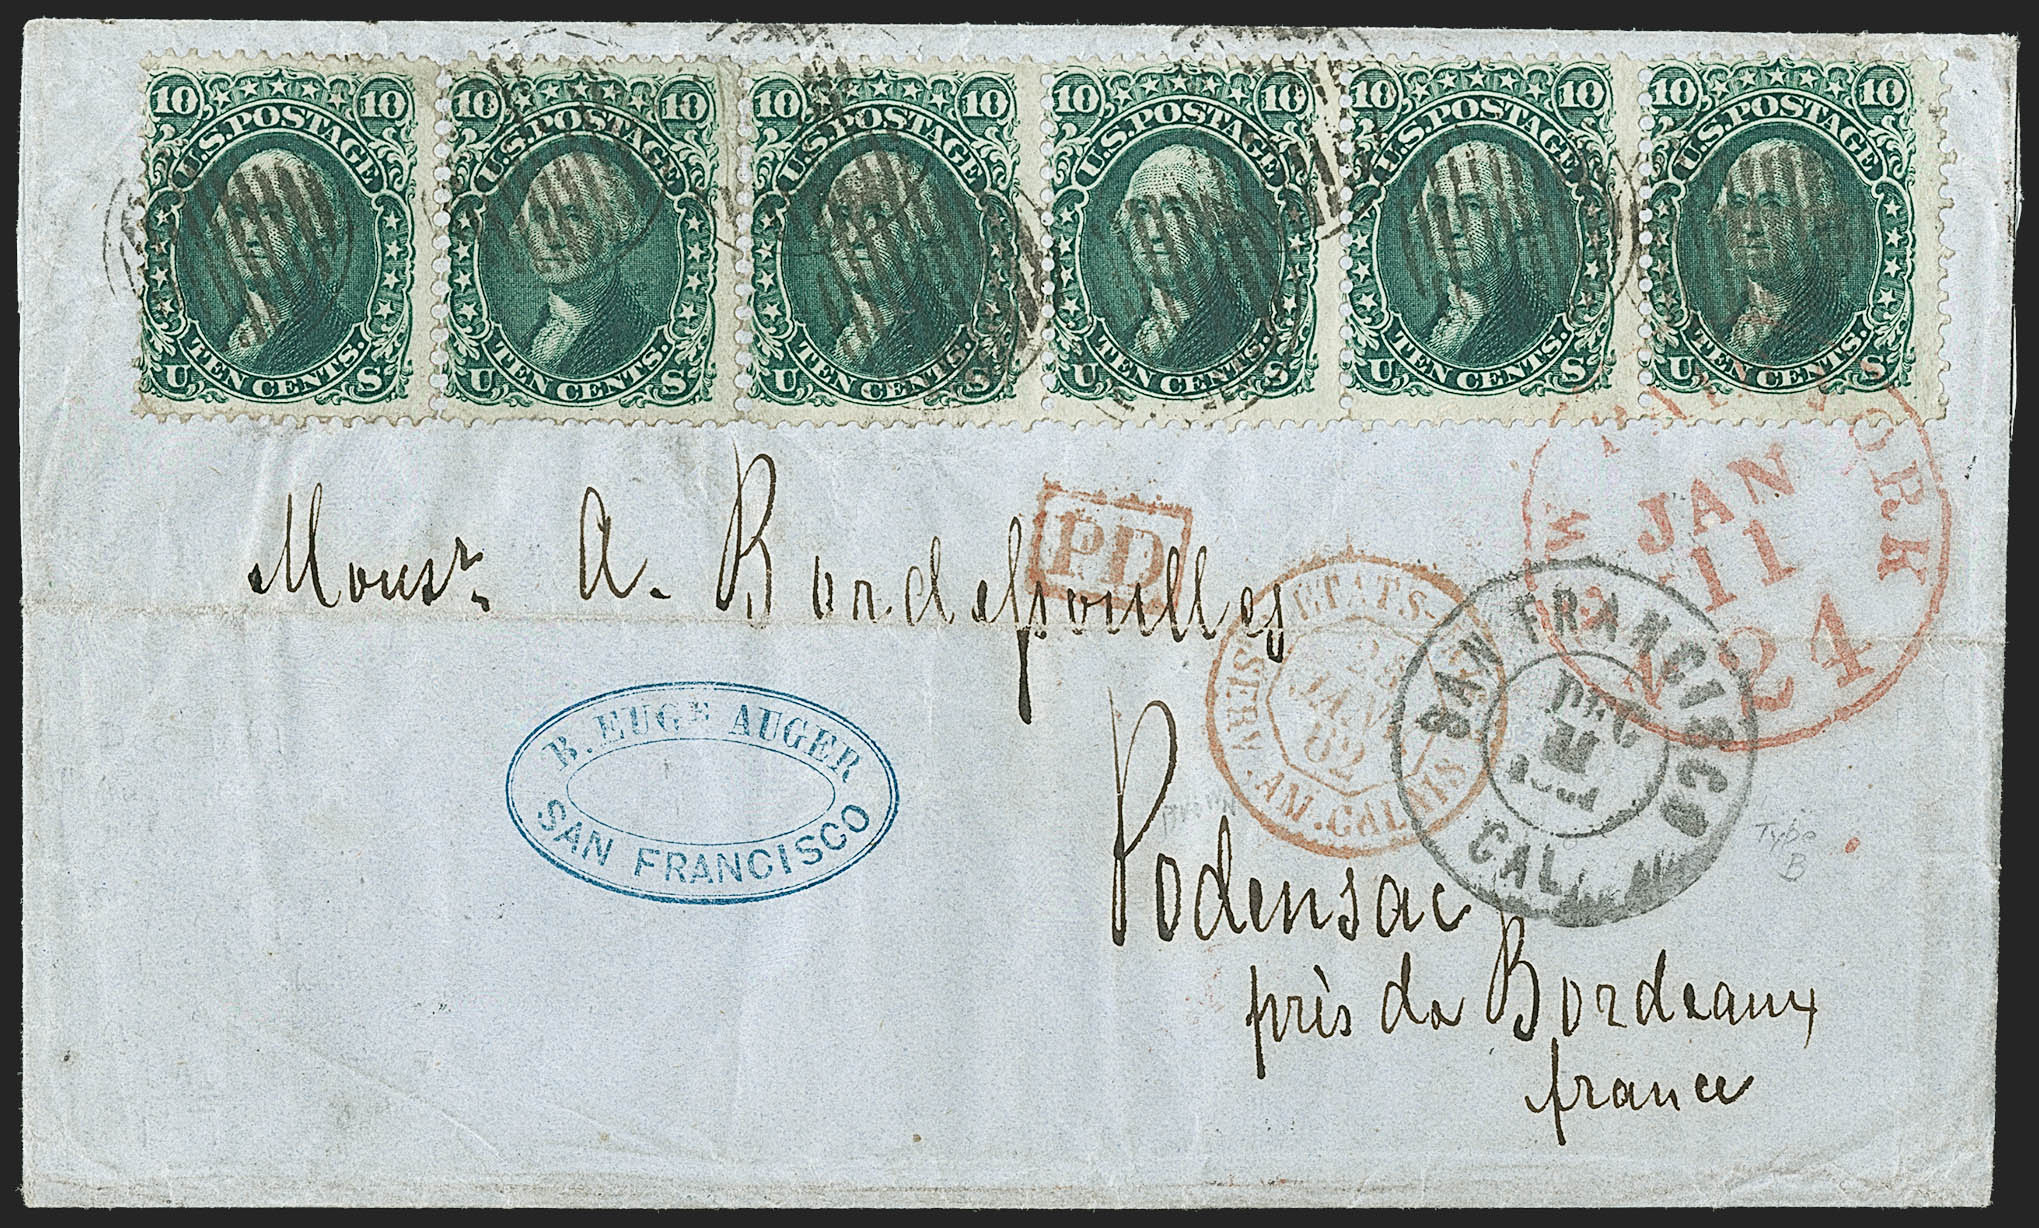 10 10 10 10 10 10 10 10 10 10 10 10
U.S. POSTAGE U.S. POSTAGE U.S. POSTAGE U.S. POSTAGE U.S. POSTAGE U.S. POSTAGE
TEN CENTS. TEN CENTS. TEN CENTS. TEN CENTS. TEN CENTS. TEN CENTS.
U S U S U S U S U S U S
YORK
JAN
11
24
PD
Monsr. A. Bordespoulles
ETATS-
25
JANV
62
SERV. AM. CALAIS
SAN FRANCISCO
DEC
CAL.
B. EUGE AUGER
SAN FRANCISCO
Type
B
Podensac
près de Bordeaux
france